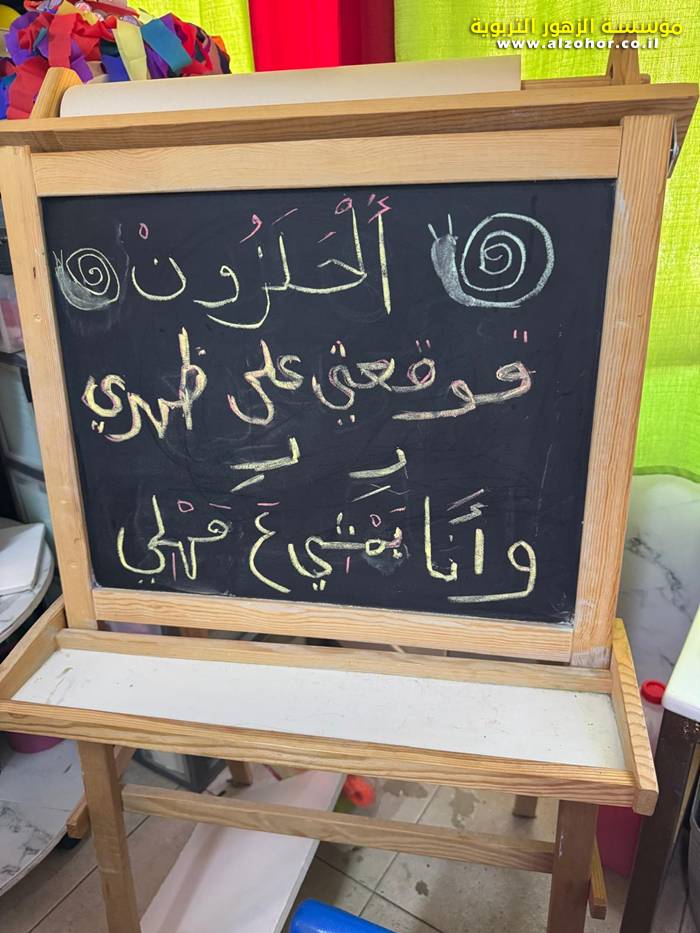 مؤسسة الزهور التربوية
www.alzohor.co.il
أَلْحَلَزُونْ
قوقعتي على ظهري
دِ دِ
وأَنا بَمْشي عَ مَهْلي